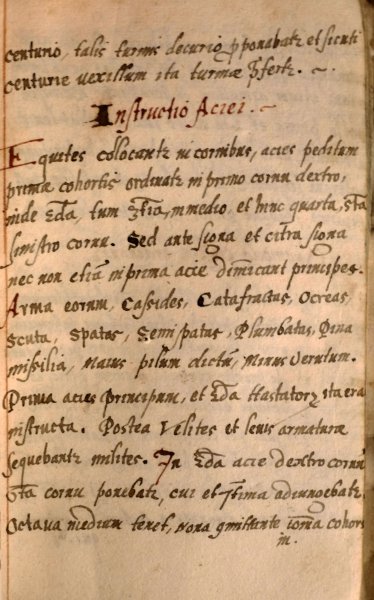 centurio, talis turmis decurio p̱ponebatꝛ et sicuti
centuriæ vexillum ita turmæ p̱fertꝛ. ~
Instructio Aciei. ~
Equites collocantꝛ in cornibus, acies peditum
primæ cohortis ordinatꝛ in primo cornu dextro,
inde 2da, tum 3tia, in medio, et hinc quarta, 5ta
sinistro cornu. Sed ante signa et citra signa
nec non etiā in prima acie dimicant principes.
Arma eorum, Cassides, Catafractus, Ocreas,
Scuta, Spatas, Semispatas, Plumbatas, Bina
missilia, Maius pilum dictū, Minus Verutum.
Prima acies Principum, et 2da Hastatorꝝ ita era
instructa. Postea Velites et levis armaturæ
sequebantꝛ milites. In 2da acie dextro cornu
6ta cornu ponebatꝛ, cui et 7tima adiungebatꝛ
Octava medium tenet, nona comittante 10ma cohors
in.